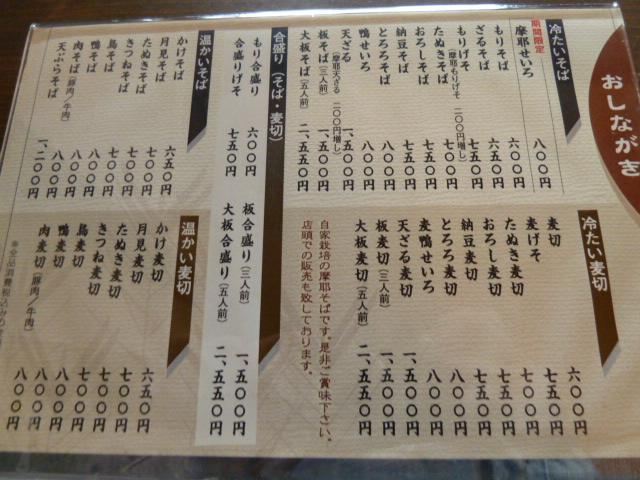 おしながき
冷たいそば
期間限定
摩耶せいろ 八〇〇円
もりそば 六〇〇円
ざるそば 六五〇円
もりげそ(摩耶もりげそ 二〇〇円増し) 七五〇円
たぬきそば 七五〇円
おろしそば 七五〇円
納豆そば
とろろそば 八〇〇円
鴨せいろ 八〇〇円
天ざる(摩耶天ざる 二〇〇円増し)
板そば(三人前)
大板そば(五人前) 二、五五〇円
冷たい麦切
麦切 六〇〇円
麦げそ 七五〇円
たぬき麦切 七五〇円
おろし麦切 七五〇円
納豆麦切
とろろ麦切 八〇〇円
麦鴨せいろ 八〇〇円
天ざる麦切
板麦切(三人前)
大板麦切(五人前) 二、五五〇円
自家栽培の摩耶そばです。是非ご賞味下さい。
店頭での販売も致しております。
合盛り(そば・麦切)
もり合盛り 六〇〇円
合盛りげそ 七五〇円
板合盛り(三人前)
大板合盛り(五人前) 二、五五〇円
温かいそば
かけそば 六五〇円
月見そば 七〇〇円
たぬきそば 七〇〇円
きつねそば 七〇〇円
鳥そば 八〇〇円
鴨そば 八〇〇円
肉そば(豚肉/牛肉) 八〇〇円
天ぷらそば 一、二〇〇円
温かい麦切
かけ麦切 六五〇円
月見麦切
たぬき麦切 七〇〇円
きつね麦切 七〇〇円
鳥麦切 八〇〇円
鴨麦切 八〇〇円
肉麦切(豚肉/牛肉) 八〇〇円
※全品消費税込み